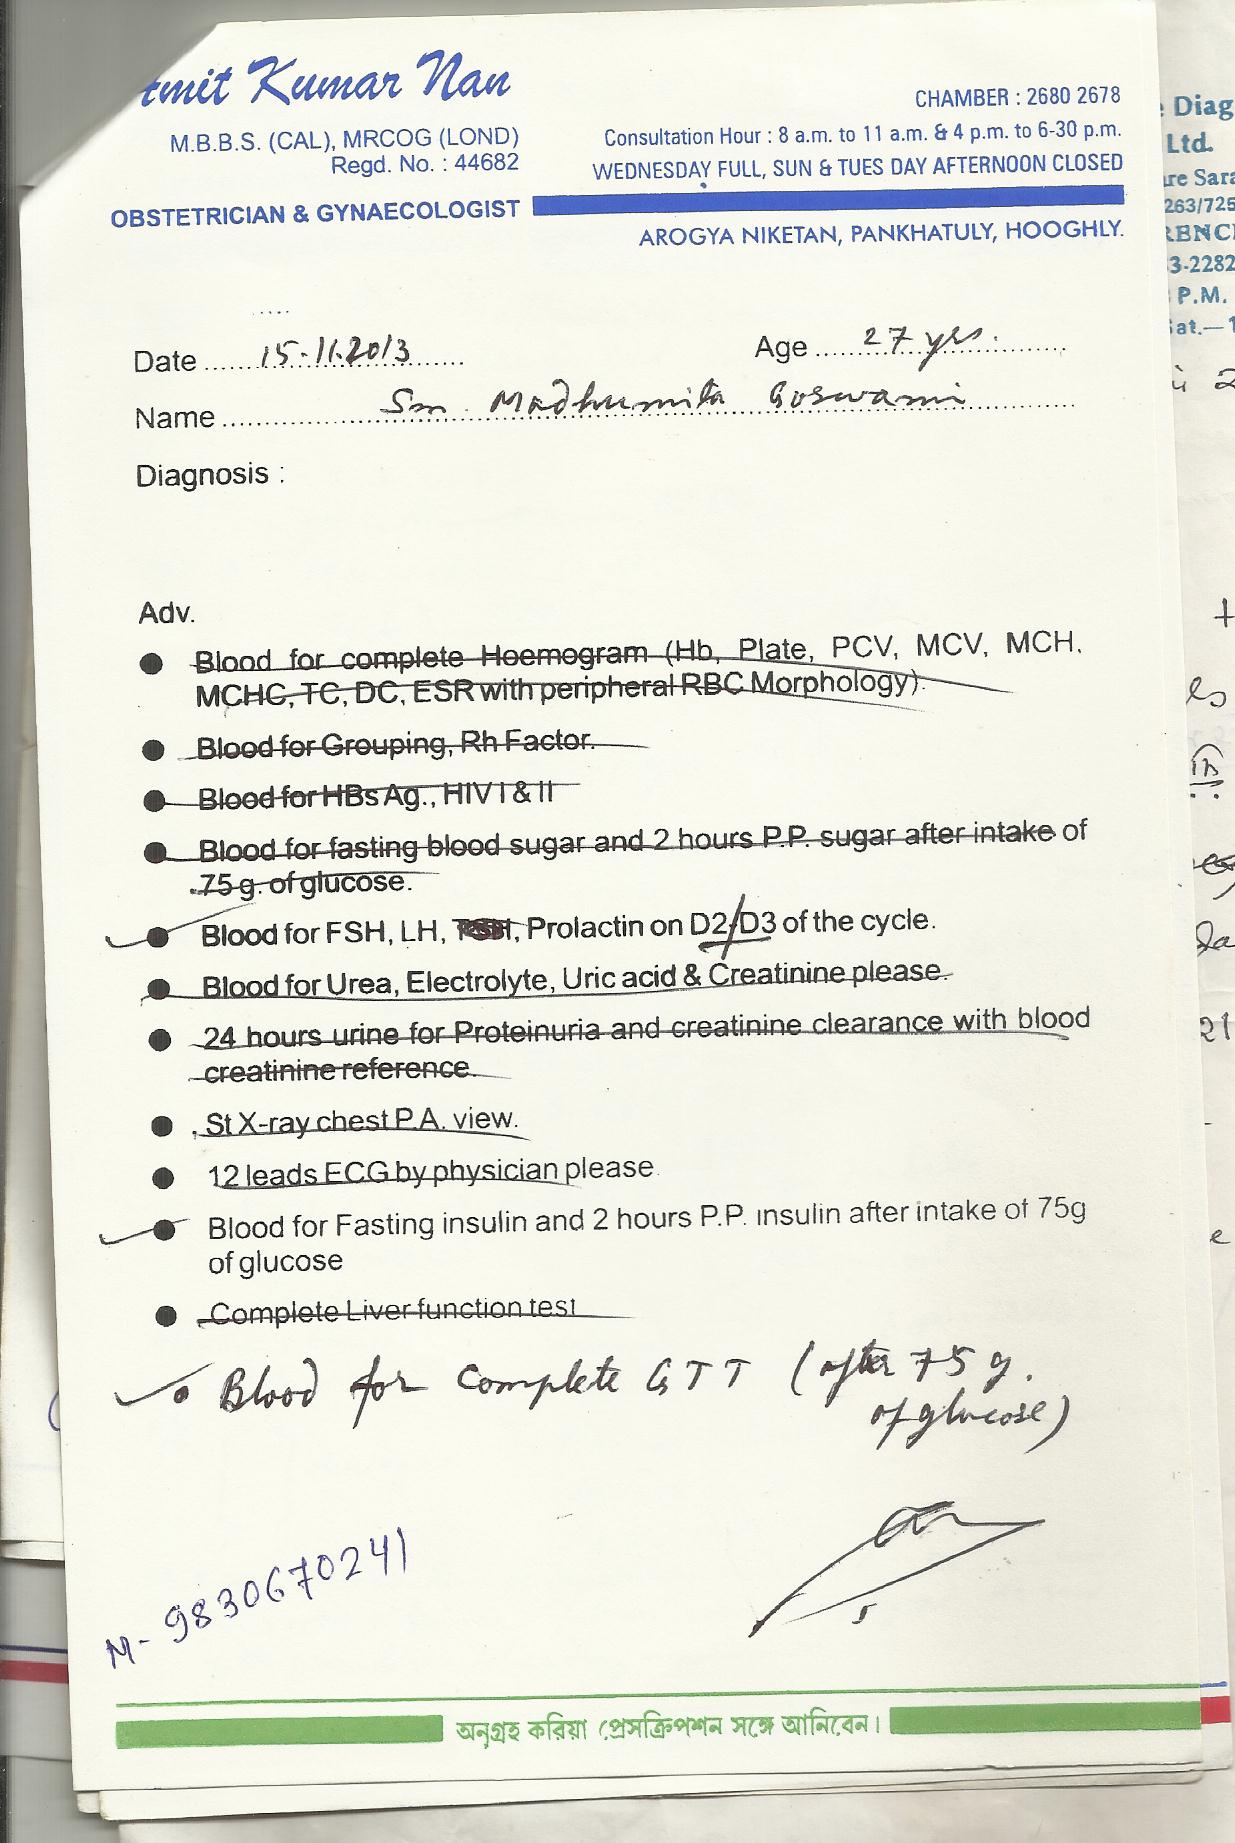 Amit Kumar Nan
M.B.B.S. (CAL), MRCOG (LOND)
Regd. No. : 44682
OBSTETRICIAN & GYNAECOLOGIST
CHAMBER : 2680 2678
Consultation Hour : 8 a.m. to 11 a.m. & 4 p.m. to 6-30 p.m.
WEDNESDAY FULL, SUN & TUES DAY AFTERNOON CLOSED
AROGYA NIKETAN, PANKHATULY, HOOGHLY.
Date 15.11.2013 Age 27 yrs.
Name Sm. Madhumita Goswami
Diagnosis :
Adv.
● Blood for complete Hoemogram (Hb, Plate, PCV, MCV, MCH.
MCHC, TC, DC, ESR with peripheral RBC Morphology).
● Blood for Grouping, Rh Factor.
● Blood for HBs Ag., HIV I & II
● Blood for fasting blood sugar and 2 hours P.P. sugar after intake of
75 g. of glucose.
● Blood for FSH, LH, Prolactin on D2/D3 of the cycle.
● Blood for Urea, Electrolyte, Uric acid & Creatinine please.
● 24 hours urine for Proteinuria and creatinine clearance with blood
creatinine reference.
● St X-ray chest P.A. view.
● 12 leads ECG by physician please
● Blood for Fasting insulin and 2 hours P.P. insulin after intake of 75g
of glucose
● Complete Liver function test
• Blood for Complete GTT (after 75 g.
of glucose)
M- 9830670241
অনুগ্রহ করিয়া প্রেসক্রিপশন সঙ্গে আনিবেন।
Diag
Ltd.
re Sara
263/725
3-2282
P.M.
at.—1